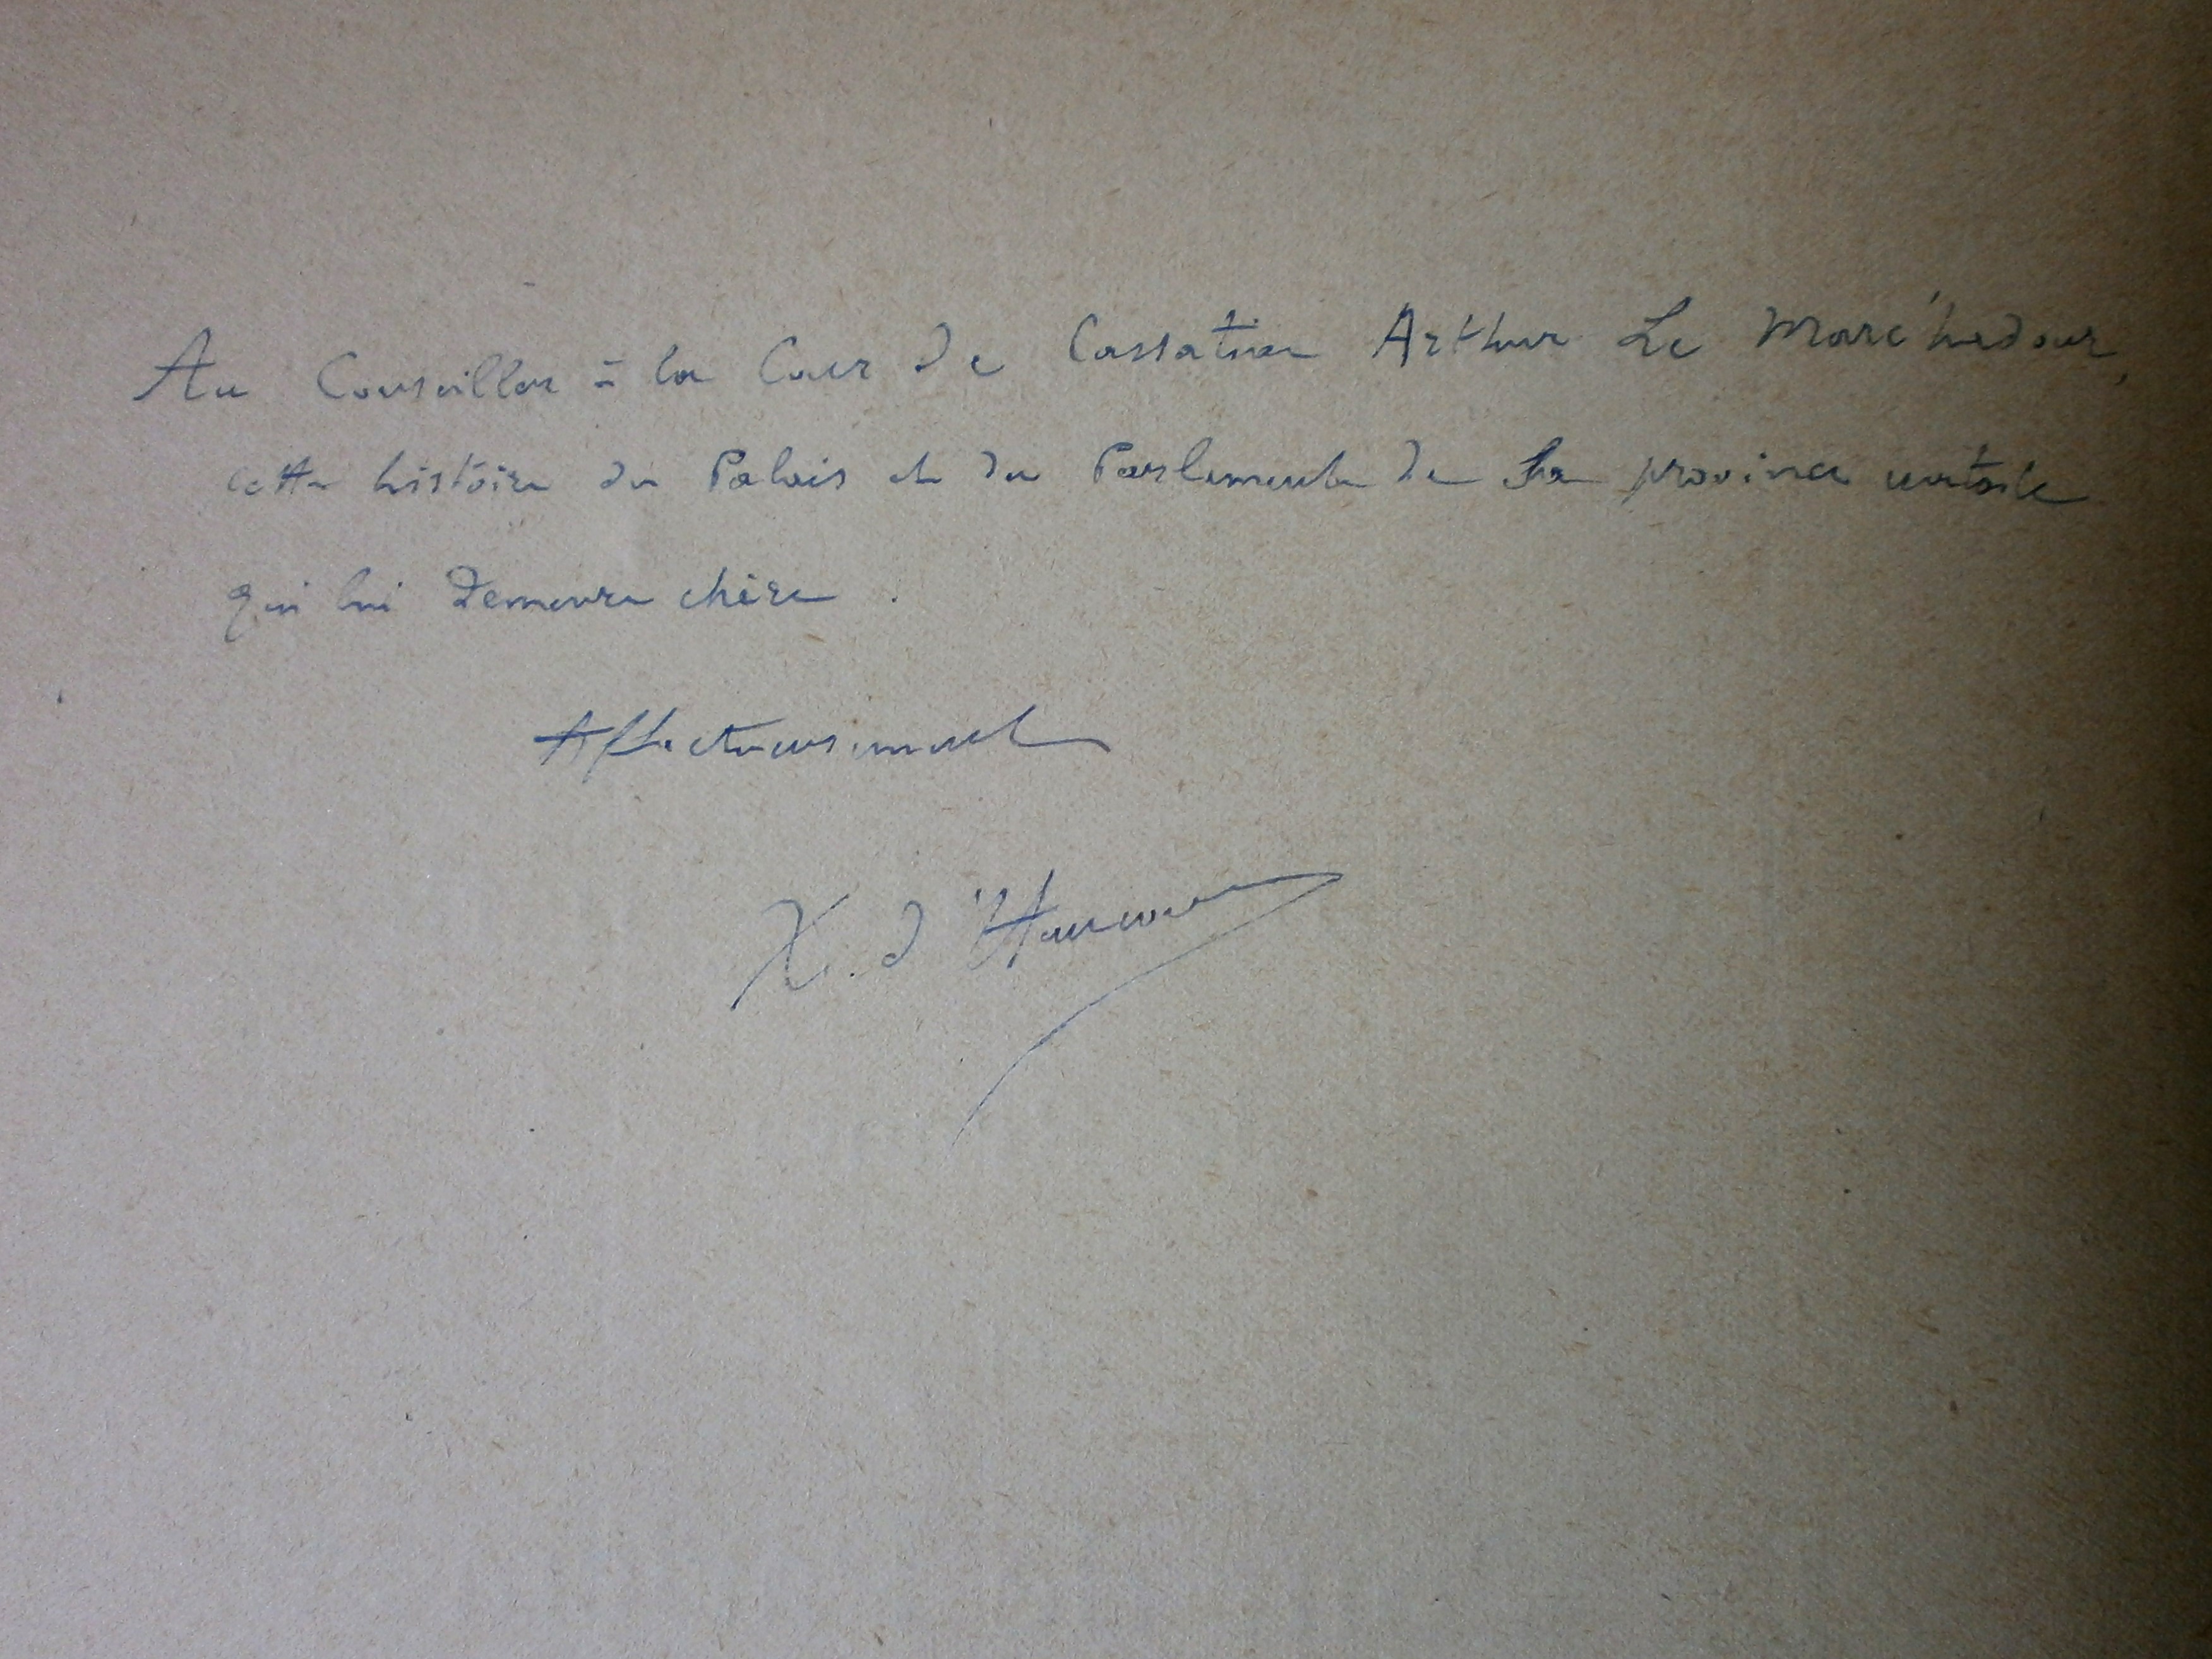 Au Conseiller à la Cour de Cassation Arthur Le Marc'hadour,
cette histoire du Palais et du Parlement de sa province natale
qui lui demeure chère.
Affectueusement
X. d'Haucour